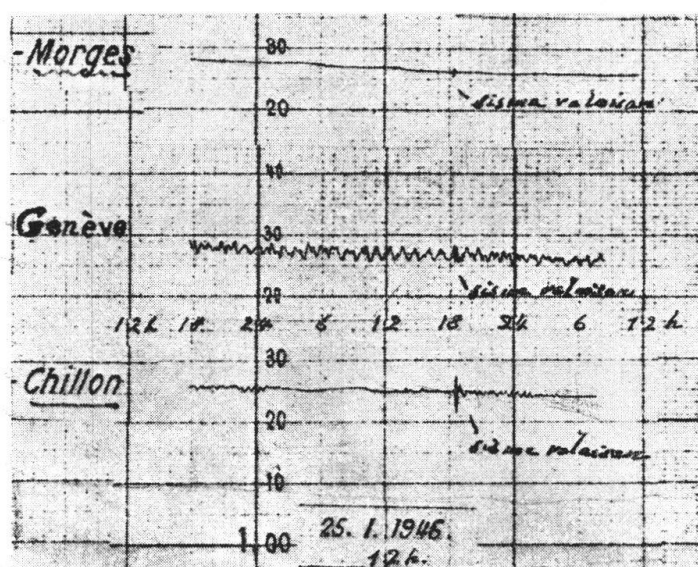 -Morges
30
20
sisma valaisan
40
Genève
30
20
sisma valaisan
12h 18 24 6 12 18 24 6 12h
30
-Chillon
20
sisma valaisan
10
1,00
25. I. 1946.
12h.